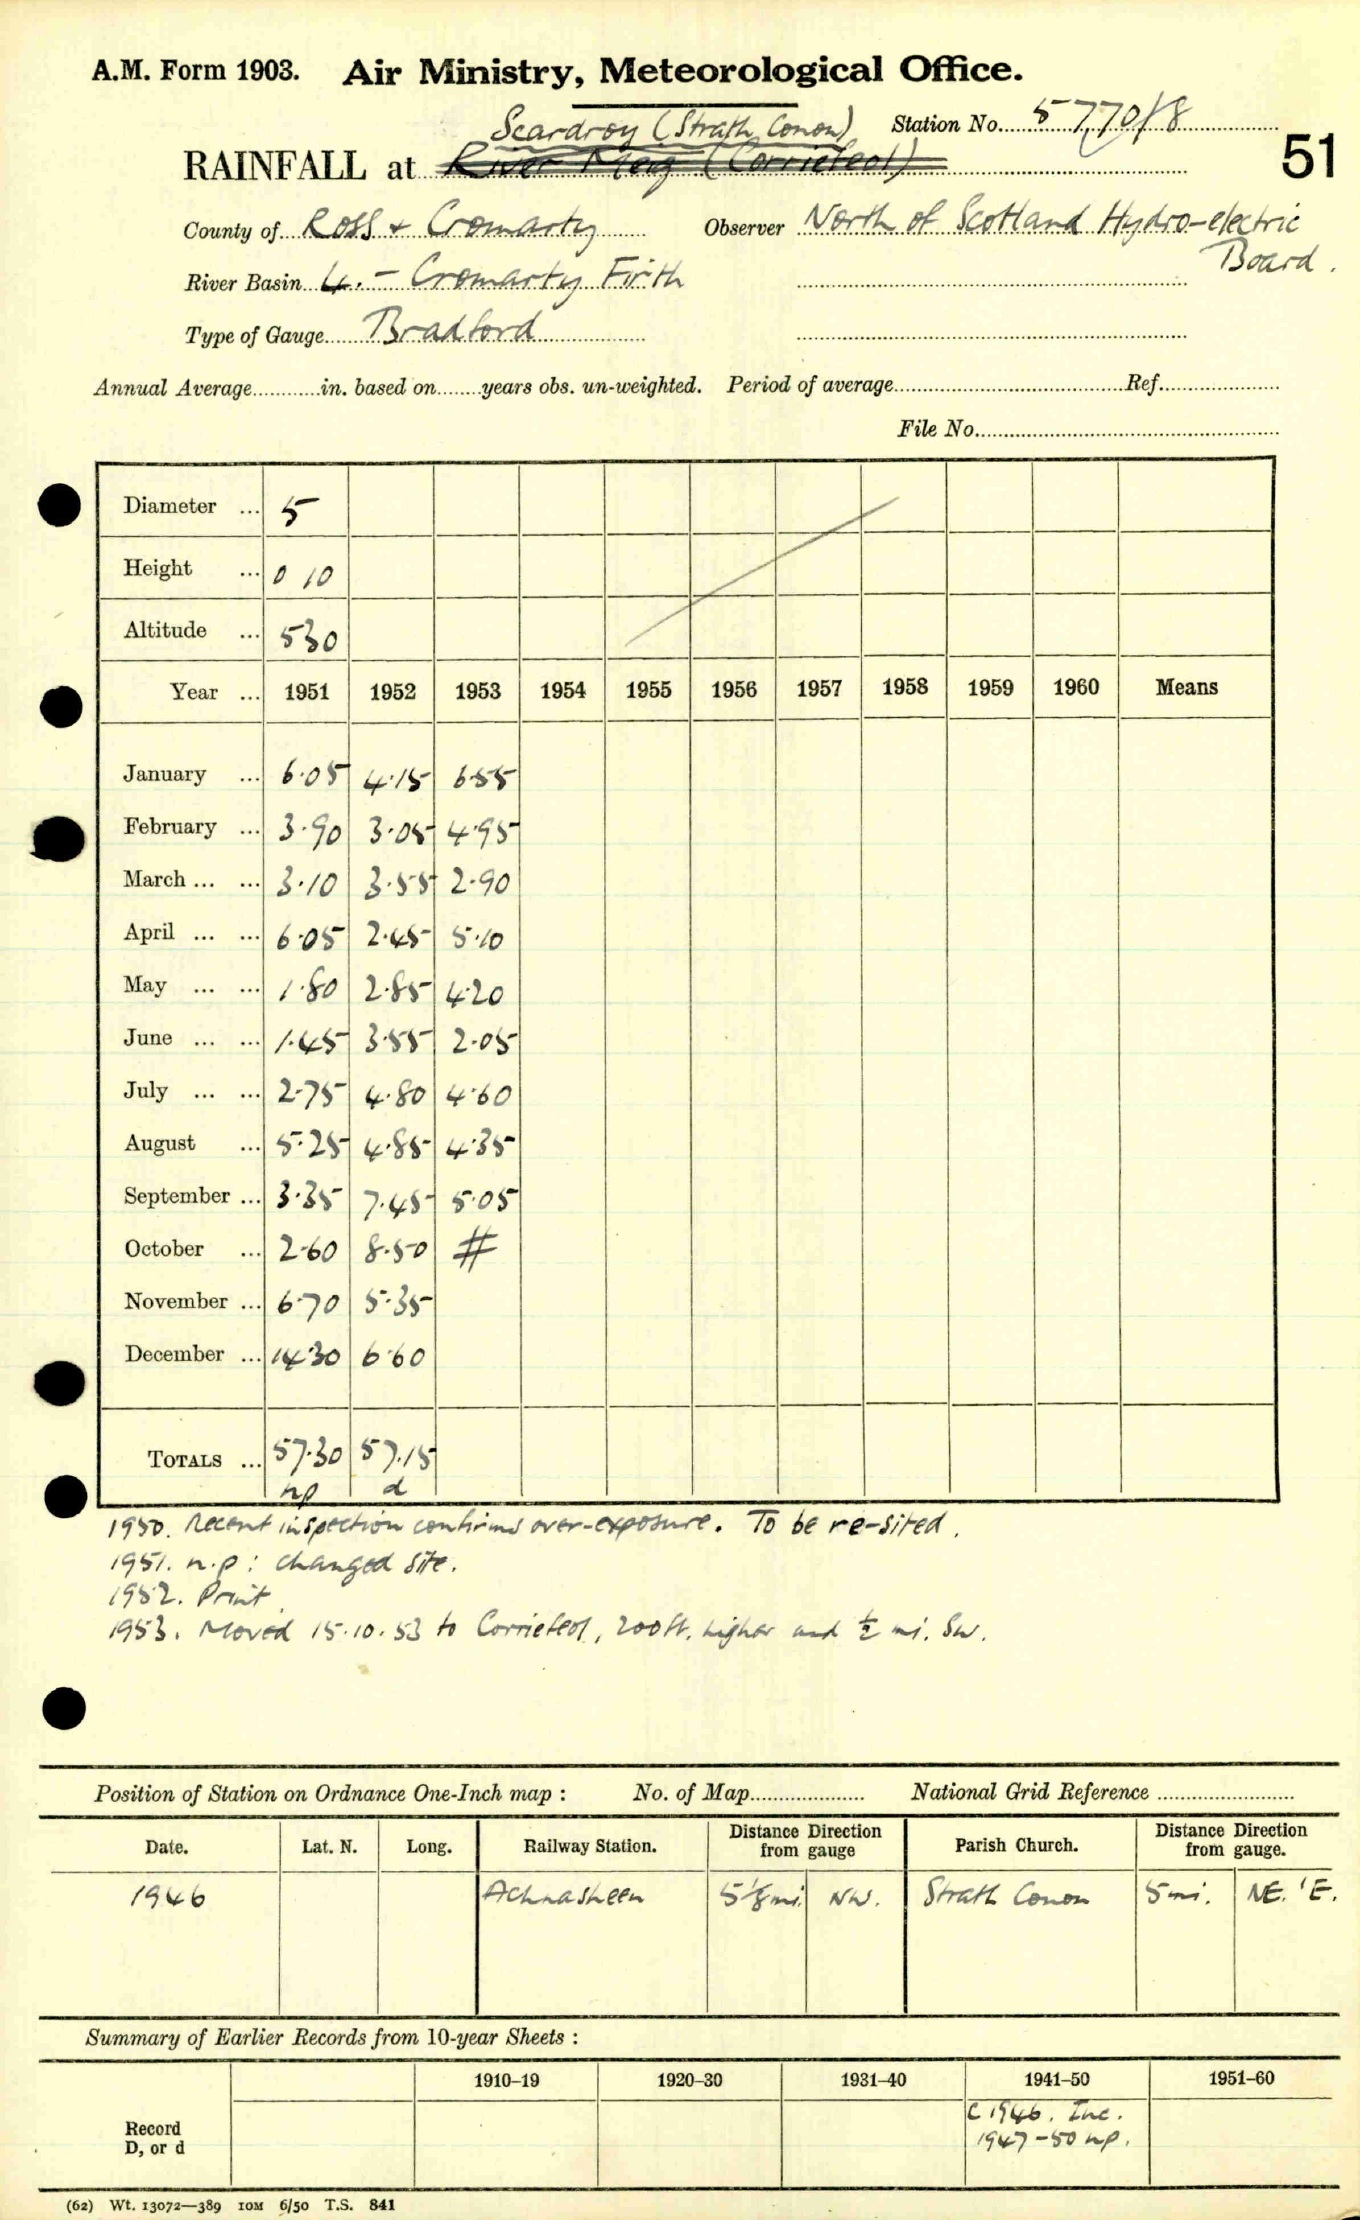 A.M. Form 1903. Air Ministry, Meteorological Office.
Scardroy (Strath Conon) Station No. 5770/8
RAINFALL at River Meig (Corriefeol) 51
County of Ross & Cromarty Observer North of Scotland Hydro-electric
Board.
River Basin 4. - Cromarty Firth
Type of Gauge Bradford
Annual Average............in. based on........years obs. un-weighted. Period of average............Ref.............
File No.............
Diameter ... 5
Height ... 0 10
Altitude ... 530
Year ... 1951 1952 1953 1954 1955 1956 1957 1958 1959 1960 Means
January ... 6·05 4·15 6·55
February ... 3·90 3·05 4·95
March ... ... 3·10 3·55 2·90
April ... ... 6·05 2·45 5·10
May ... ... 1·80 2·85 4·20
June ... ... 1·45 3·55 2·05
July ... ... 2·75 4·80 4·60
August ... 5·25 4·85 4·35
September ... 3·35 7·45 5·05
October ... 2·60 8·50 #
November ... 6·70 5·35
December ... 14·30 6·60
TOTALS ... 57·30 57·15
np d
1950. Recent inspection confirms over-exposure. To be re-sited.
1951. n.p: changed site.
1952. Print
1953. Moved 15.10.53 to Corriefeol, 200ft. higher and ½ mi. SW.
Position of Station on Ordnance One-Inch map : No. of Map............ National Grid Reference ............
Date. Lat. N. Long. Railway Station. Distance Direction from gauge Parish Church. Distance Direction from gauge.
1946 Achnasheen 5⅛ mi. NW. Strath Conon 5 mi. NE.'E.
Summary of Earlier Records from 10-year Sheets :
1910–19 1920–30 1931–40 1941–50 1951–60
Record
D, or d
c 1946. Inc.
1947–50 np.
(62) Wt. 13072—389 10M 6/50 T.S. 841